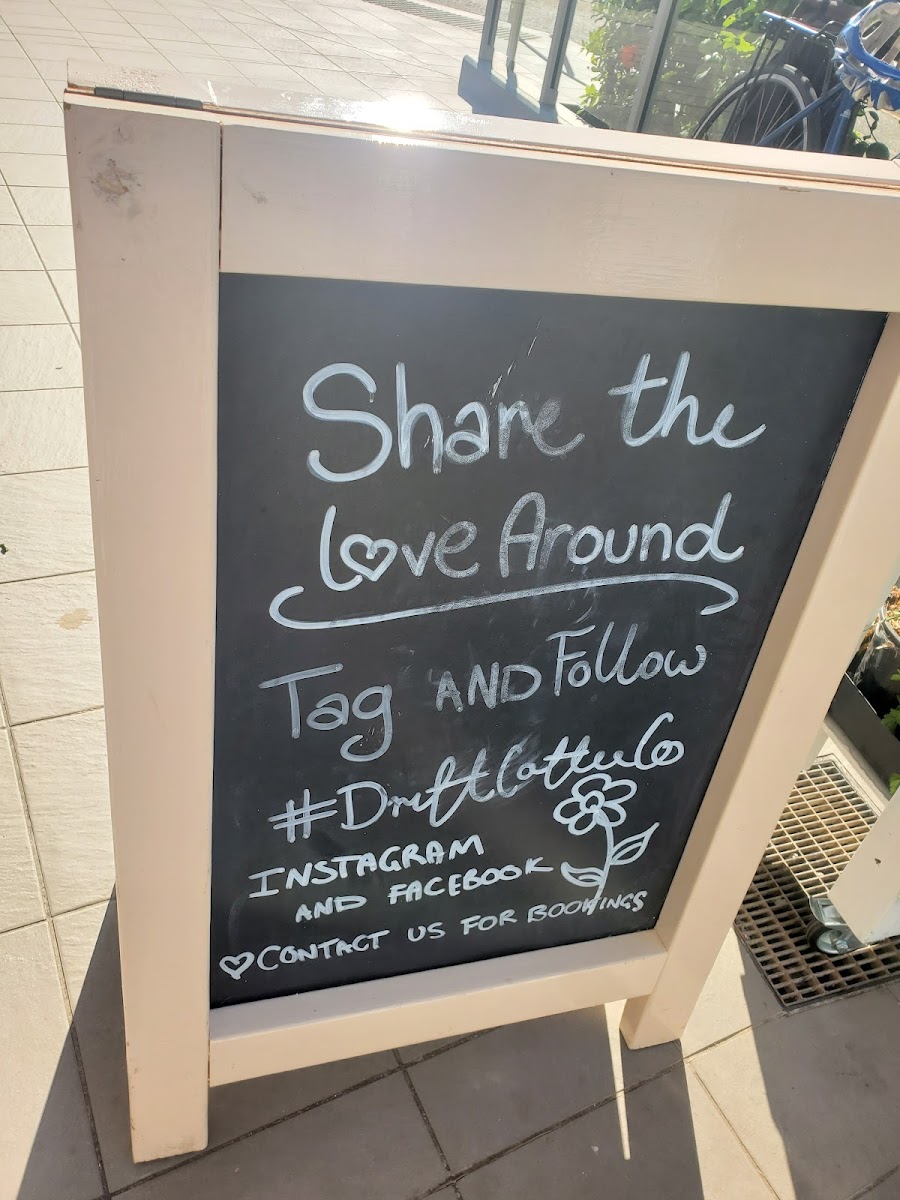 Share the
love Around
Tag AND Follow
#DriftCoffeeCo
INSTAGRAM
AND FACEBOOK
CONTACT US FOR BOOKINGS